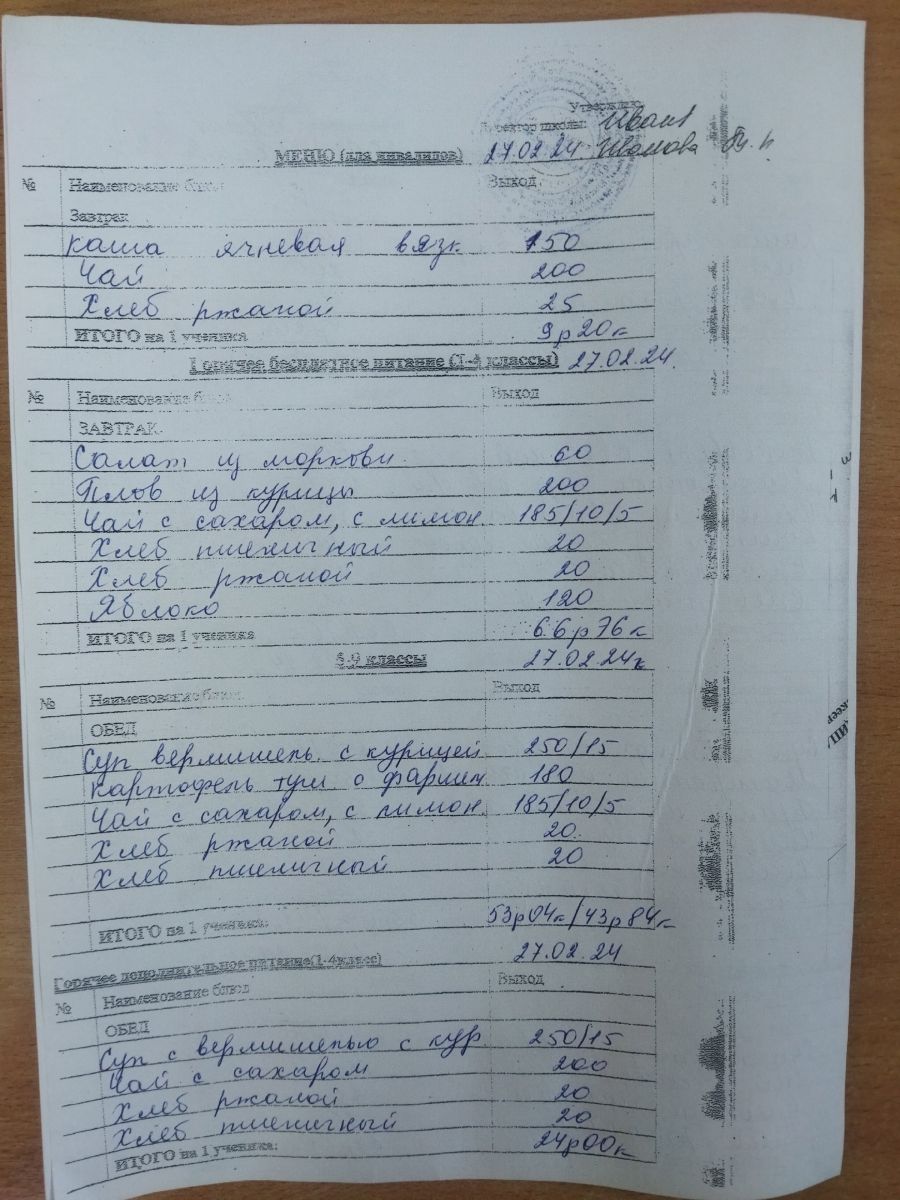 Утверждаю
Директор школы: Иван
МЕНЮ (для инвалидов) 27.02.24 Иванова
№ Наименование блюд Выход
Завтрак
Каша ячневая вязк. 150
Чай 200
Хлеб ржаной 25
ИТОГО на 1 ученика 9р20к
Горячее бесплатное питание (1-4 классы) 27.02.24.
№ Наименование блюд Выход
ЗАВТРАК
Салат из моркови 60
Плов из курицы 200
Чай с сахаром, с лимон. 185/10/5
Хлеб пшеничный 20
Хлеб ржаной 20
Яблоко 120
ИТОГО на 1 ученика 66р76к
5-9 классы 27.02.24г
№ Наименование блюд Выход
ОБЕД
Суп вермишель. с курицей 250/15
Картофель туш с фаршем 180
Чай с сахаром, с лимон. 185/10/5
Хлеб ржаной 20
Хлеб пшеничный 20
ИТОГО на 1 ученика: 53р04к/43р84к
27.02.24
Горячее дополнительное питание(1-4класс)
№ Наименование блюд Выход
ОБЕД
Суп с вермишелью с кур. 250/15
Чай с сахаром 200
Хлеб ржаной 20
Хлеб пшеничный 20
ИТОГО на 1 ученика: 24р00к